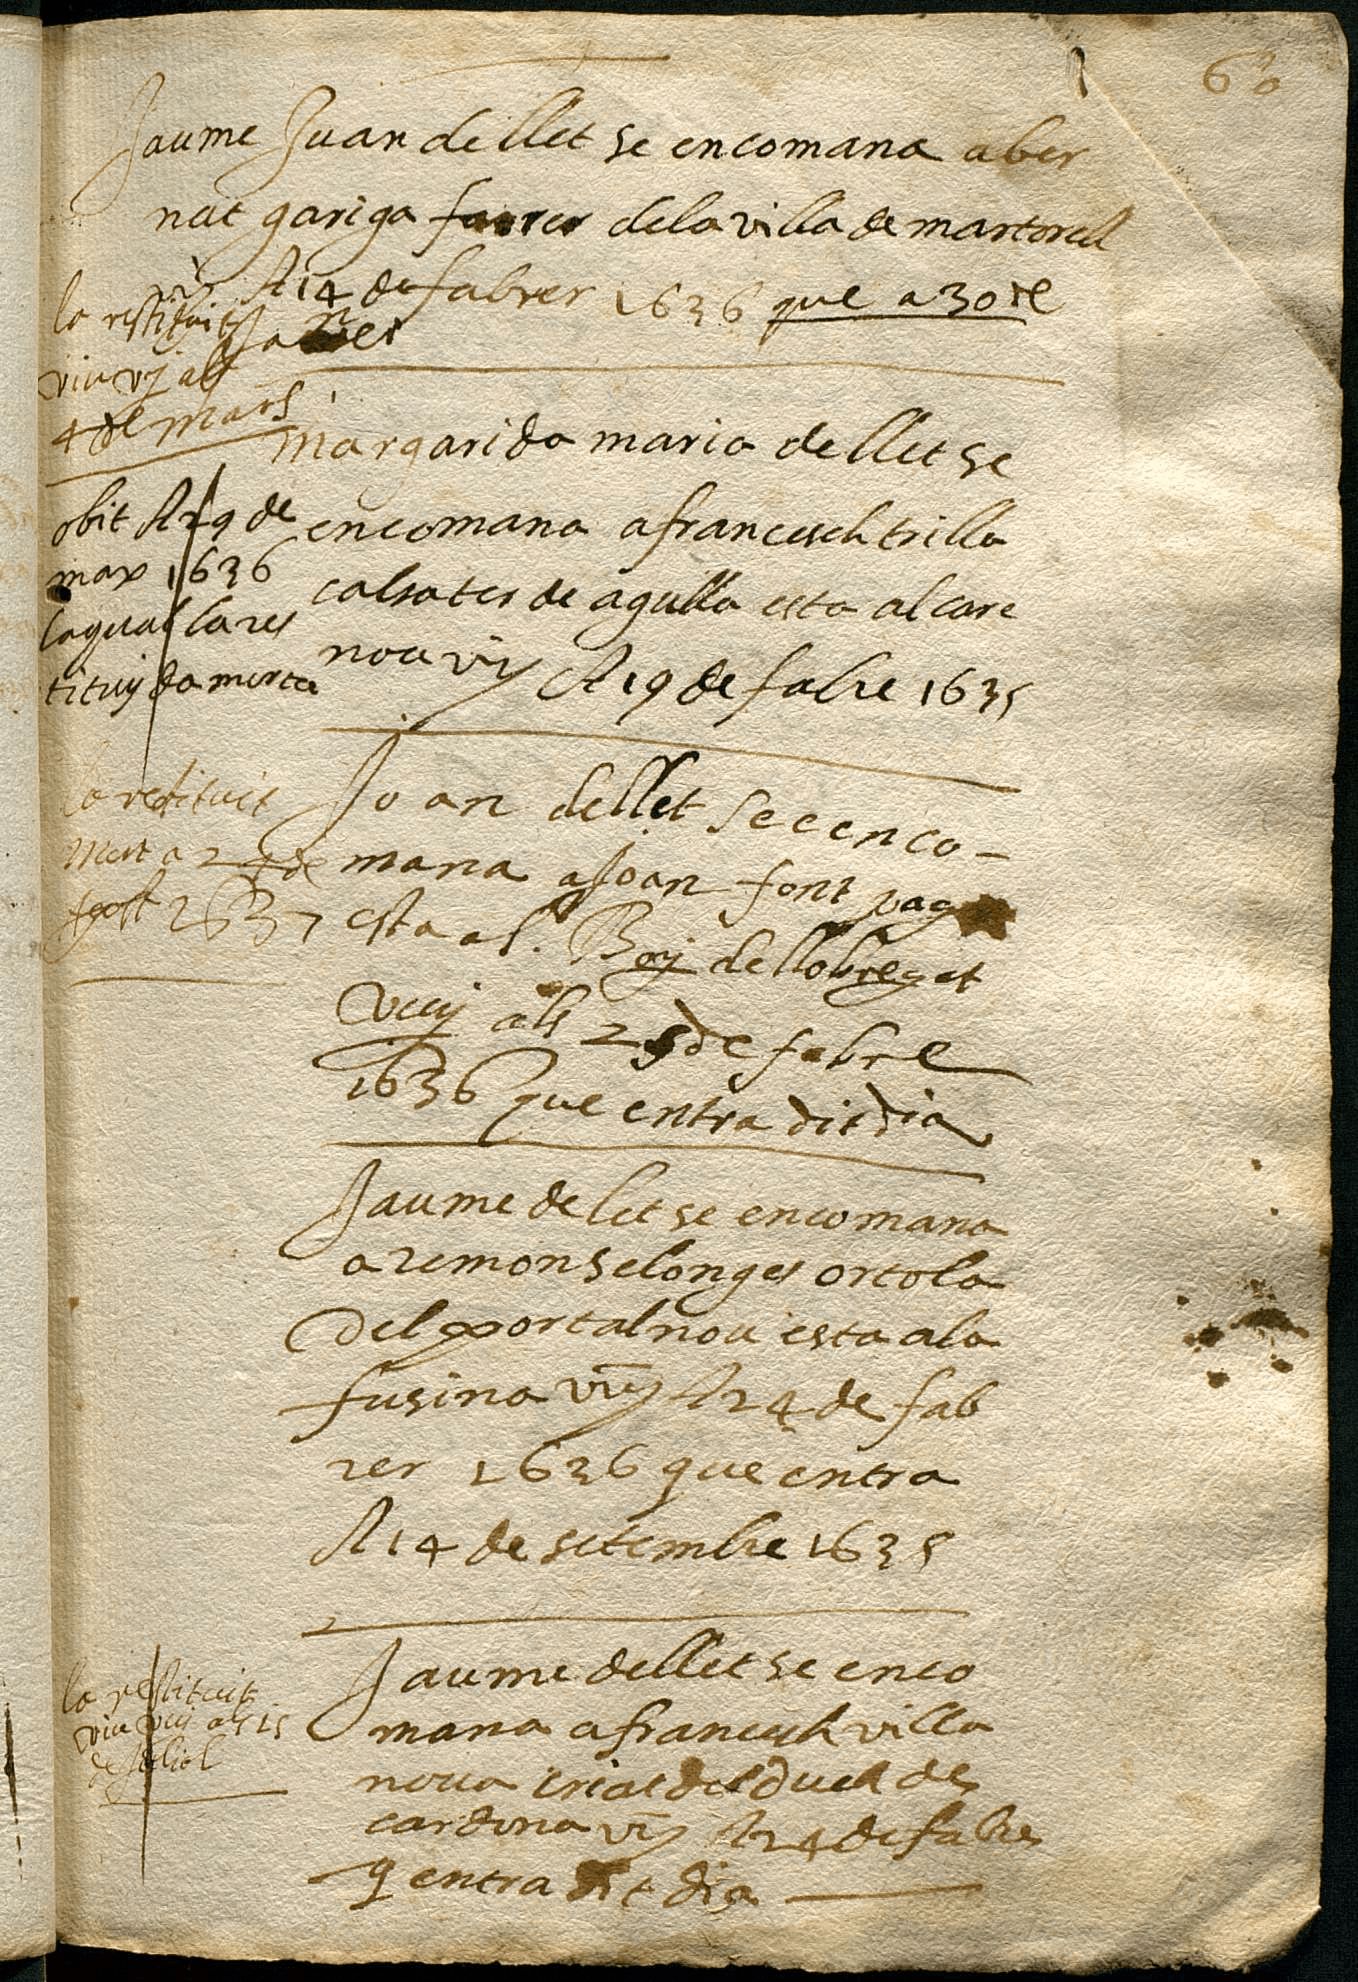 60
Jaume Juan de llet se encomana a ber
nat gariga farrer de la villa de martorell
vi A 14 de fabrer 1636 que a 30 de
Janer
la restituit
viu vj als
4 de mars
margarida maria de llet se
encomana a francesch trilla
calsater de agulla esta al care
nou vij A 19 de fabre 1635
obit A 29 de
max 1636
la qual la res
tituyda morta
Joan de llet se enco-
mana a Joan font pag
esta a S. Boy de llobregat
vuy als 25 de fabre
1636 que entra dit dia
la restituit
mort a 24 de
Agost 1637
Jaume de let se encomana
a remon selonges ortola
del portal nou esta a la
fusina viiij A 24 de fab
rer 1636 que entra
A 14 de setembre 1635
Jaume de llet se enco
mana a francesch villa
noua criat del duch de
cardona vij A 24 de fabrer
q entra dit dia
la restituit
viu vuy als 15
de Juliol